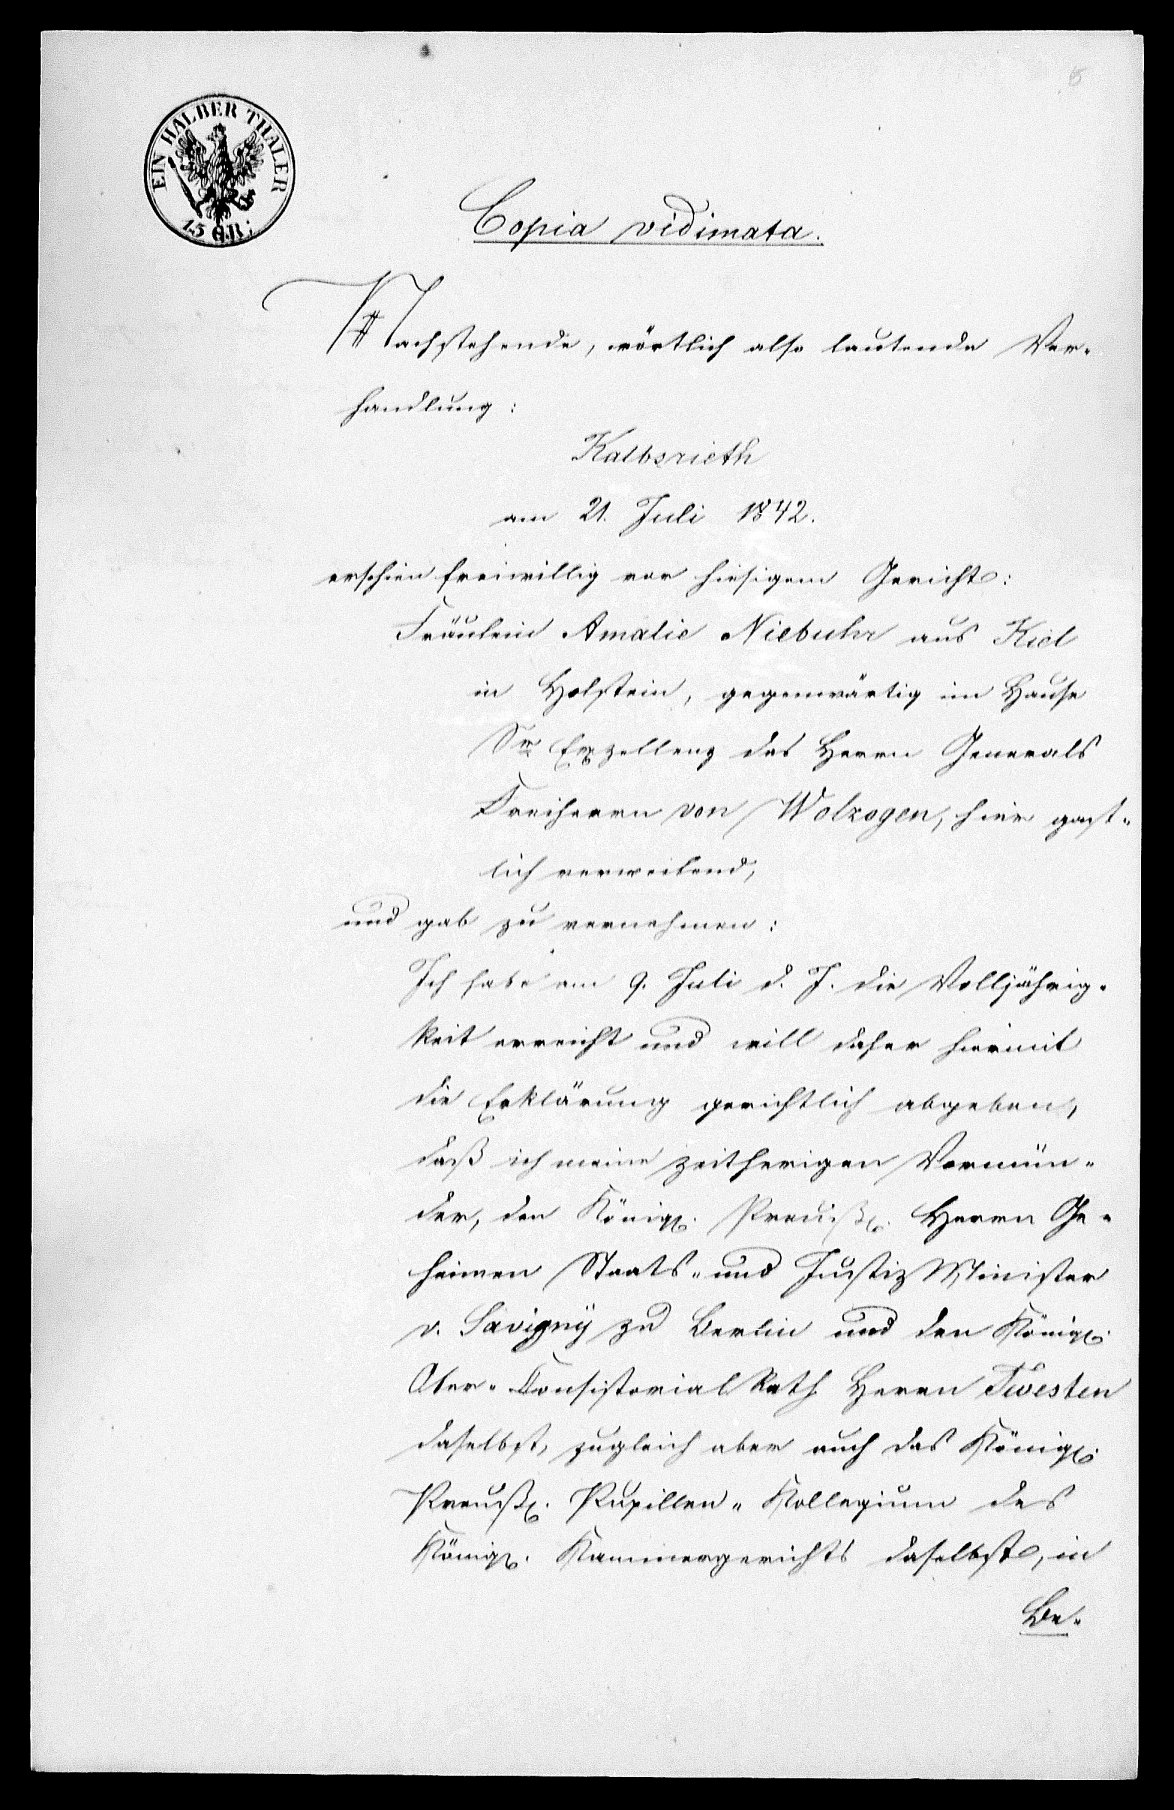 65
EIN HALBER THALER
15 GR:
Copia vidimata.
Nachstehende, wörtlich also lautende Ver-
handlung:
Kalbsrieth
am 21. Juli 1842.
erschien freiwillig vor hiesigem Gericht:
Fräulein Amalie Niebuhr aus Kiel
in Holstein, gegenwärtig im Hause
Sr. Exzellenz des Herrn Generals
Freiherrn von Wolzogen, hier gast-
lich verweilend,
und gab zu vernehmen:
Ich habe am 9. Juli d. J. die Volljährig-
keit erreicht und will daher hiermit
die Erklärung gerichtlich abgeben,
daß ich meine zeitherigen Vormün-
der, den Königl. Preuß. Herrn Ge-
heimen Staats- und Justiz Minister
v. Savigny zu Berlin und den Königl.
Ober-Consistorial Rath Herrn Twesten
daselbst, zugleich aber auch das Königl.
Preuß. Pupillen-Kollegium des
Königl. Kammergerichts daselbst, in
Be-